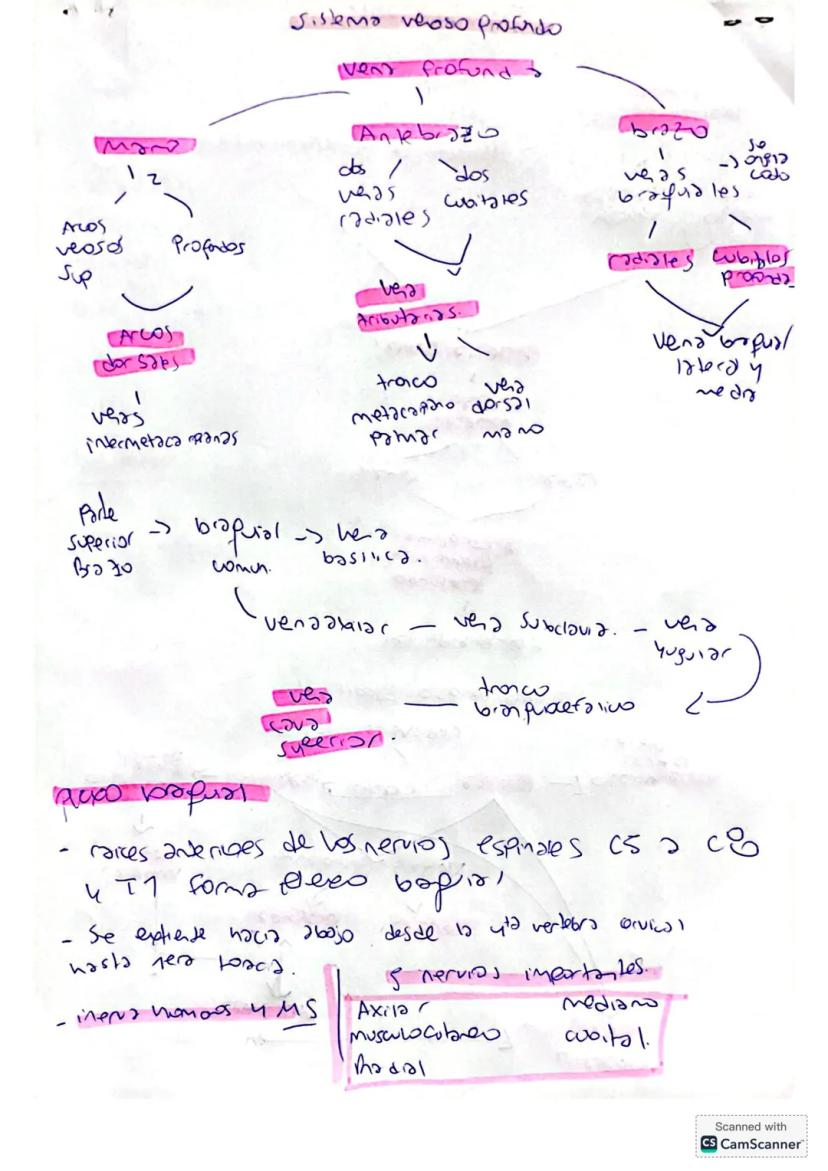 Sistema venoso profundo
vena profunda
Mano
1 2
Arcos
venosos
sup
Profundos
Arcos
dorsales
venas
intermetacarpianas
Antebrazo
dos
venas
radiales
dos
cubitales
vena
tributarias.
tronco
metacarpiano
palmar
vena
dorsal
mano
brazo
venas
braquiales
-> se
origina
codo
radiales
cubitales
profunda
vena braquial
lateral y
media
Parte
superior
Brazo
-> braquial
comun.
-> vena
basilica.
vena axilar — vena subclavia. — vena
yugular
tronco
branquiocefalico
vena
cava
superior.
plexo braquial
- raices anteriores de los nervios espinales C5 a C8
y T1 forma plexo braquial
- Se extiende hacia abajo desde la 4ta vertebra cervical
hasta 1era toracica.
- inerva hombros y MS
5 nervios importantes.
Axilar mediano
musculocutaneo cubital.
Radial
Scanned with
CS CamScanner